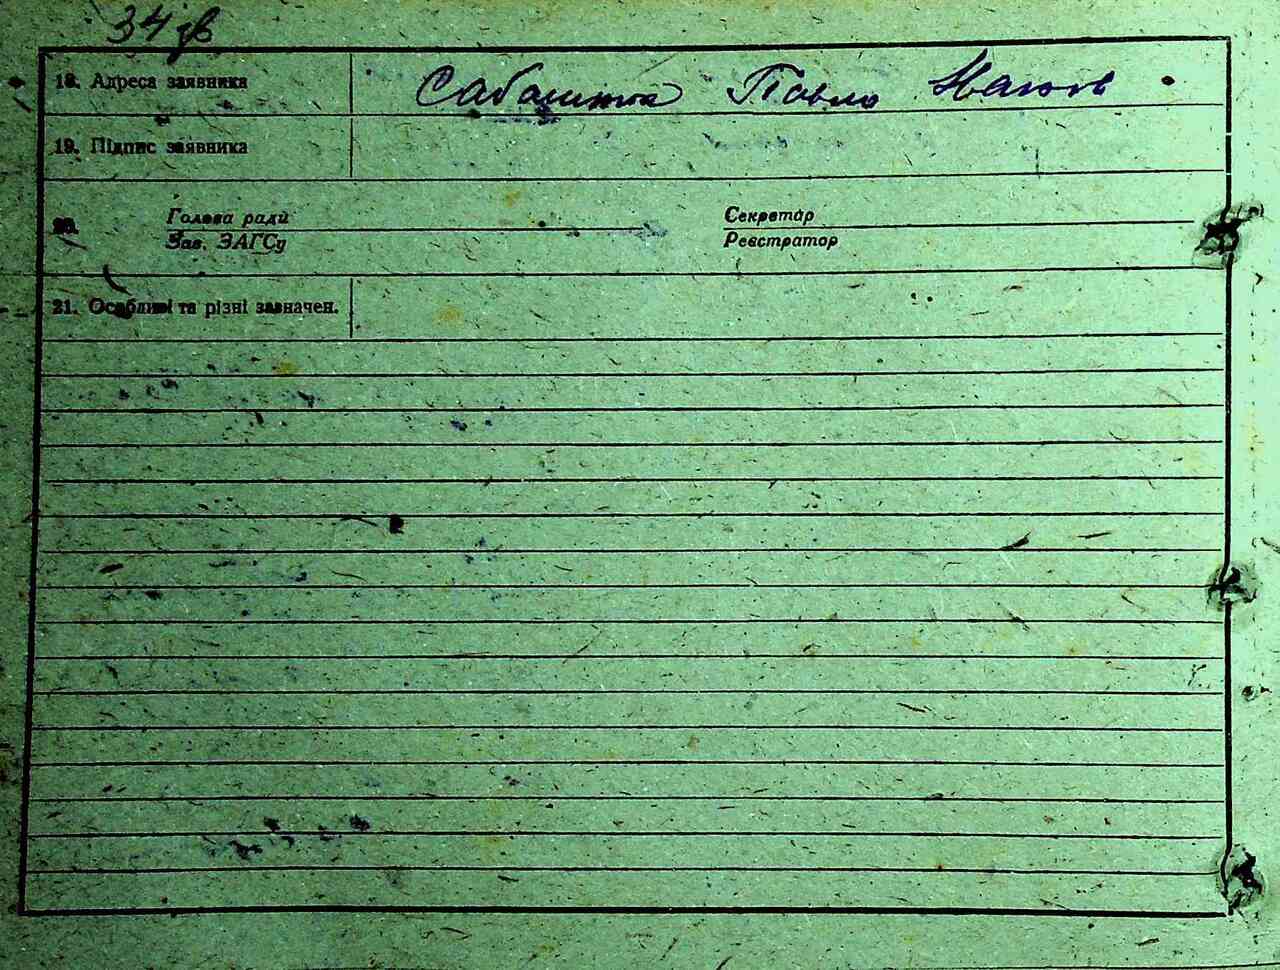 34 зв
18. Адреса заявника Сабашюк Павло
19. Підпис заявника
20. Голова ради Секретар
Зав. ЗАГСу Реєстратор
21. Особливі та різні зазначен.